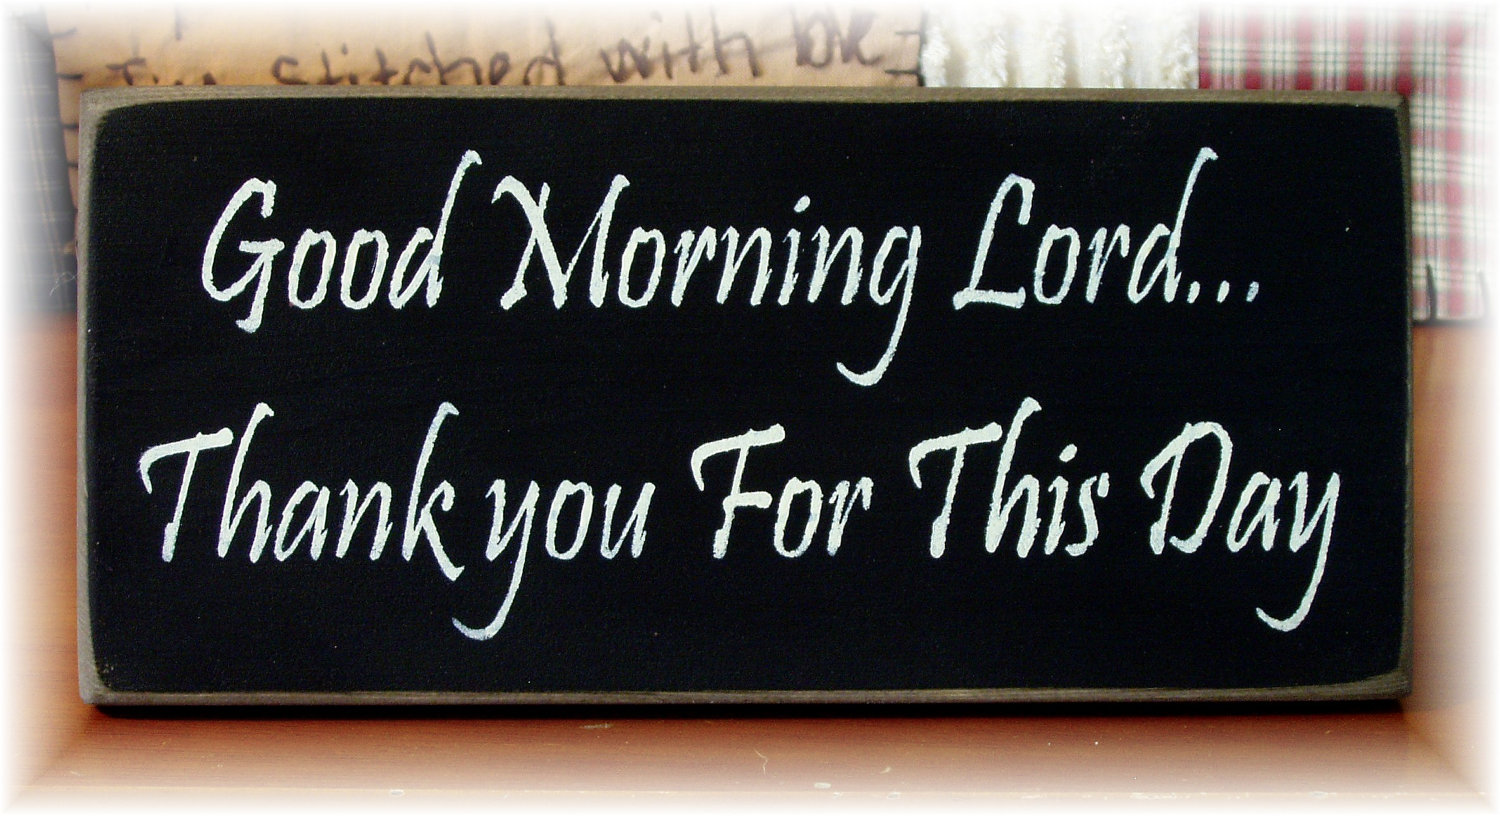 stitched with love
Good Morning Lord...
Thank you For This Day